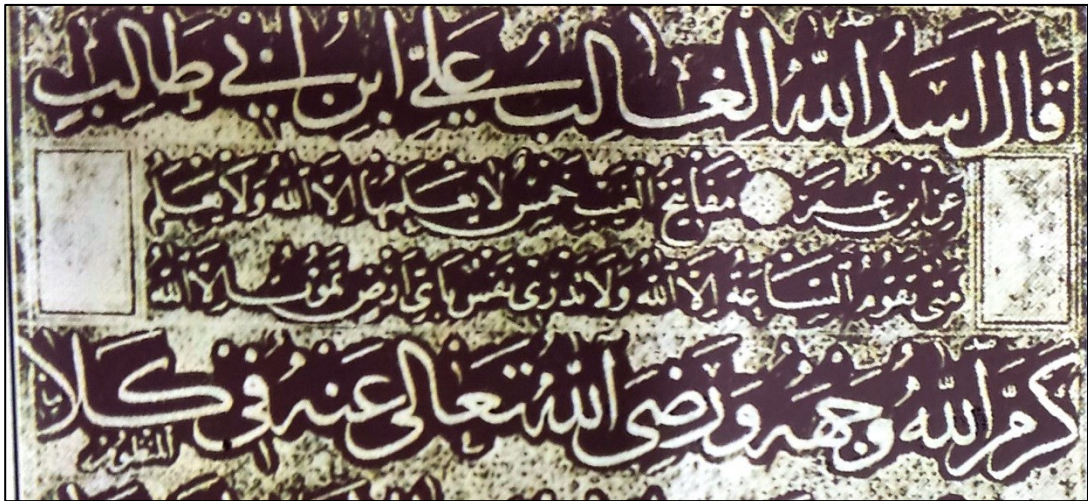 قَالَ اَسَدُ اللّٰهِ الْغَالِبُ عَلِيُّ ابْنُ اَبِي طَالِبٍ
عَنِ ابْنِ عُمَرَ مَفَاتِيحُ الْغَيْبِ خَمْسٌ لَا يَعْلَمُهَا اِلَّا اللّٰهُ وَلَا يَعْلَمُ
مَتَى تَقُومُ السَّاعَةُ اِلَّا اللّٰهُ وَلَا تَدْرِى نَفْسٌ بِاَىِّ اَرْضٍ تَمُوتُ اِلَّا اللّٰهُ
كَرَّمَ اللّٰهُ وَجْهَهُ وَرَضِىَ اللّٰهُ تَعَالٰى عَنْهُ فِى كَلَا
المنظوم